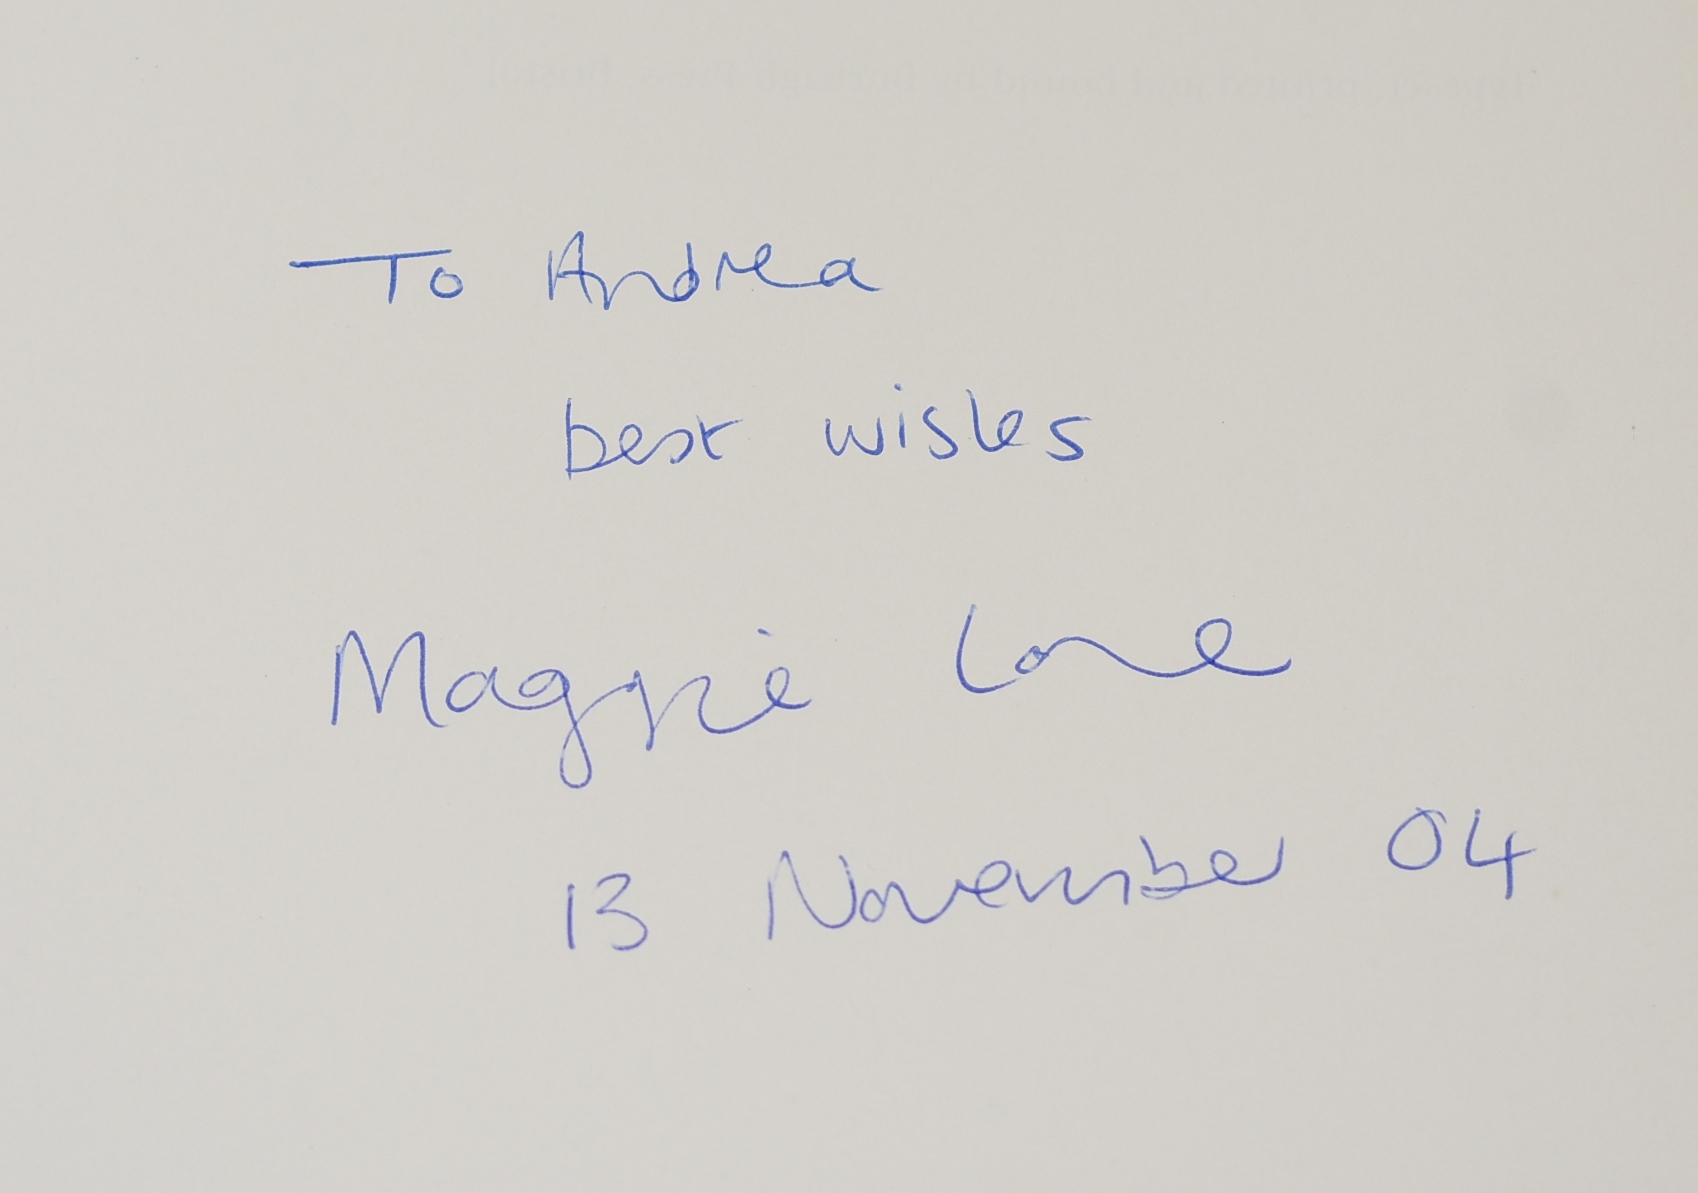 To Andrea
best wishes
Maggie Lane
13 November 04